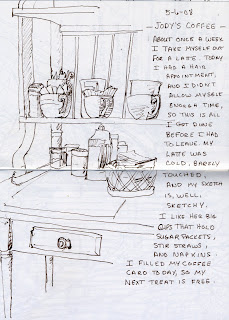 5-6-08
JODY'S COFFEE —
ABOUT ONCE A WEEK
I TAKE MYSELF OUT
FOR A LATE. TODAY
I HAD A HAIR
APPOINTMENT,
AND I DIDN'T
ALLOW MYSELF
ENOUGH TIME,
SO THIS IS ALL
I GOT DONE
BEFORE I HAD
TO LEAVE. MY
LATE WAS
COLD, BARELY
TOUCHED,
AND MY SKETCH
IS, WELL,
SKETCHY.
I LIKE HER BIG
CUPS THAT HOLD
SUGAR PACKETS,
STIR STRAWS,
AND NAPKINS.
I FILLED MY COFFEE
CARD TODAY, SO MY
NEXT TREAT IS FREE.